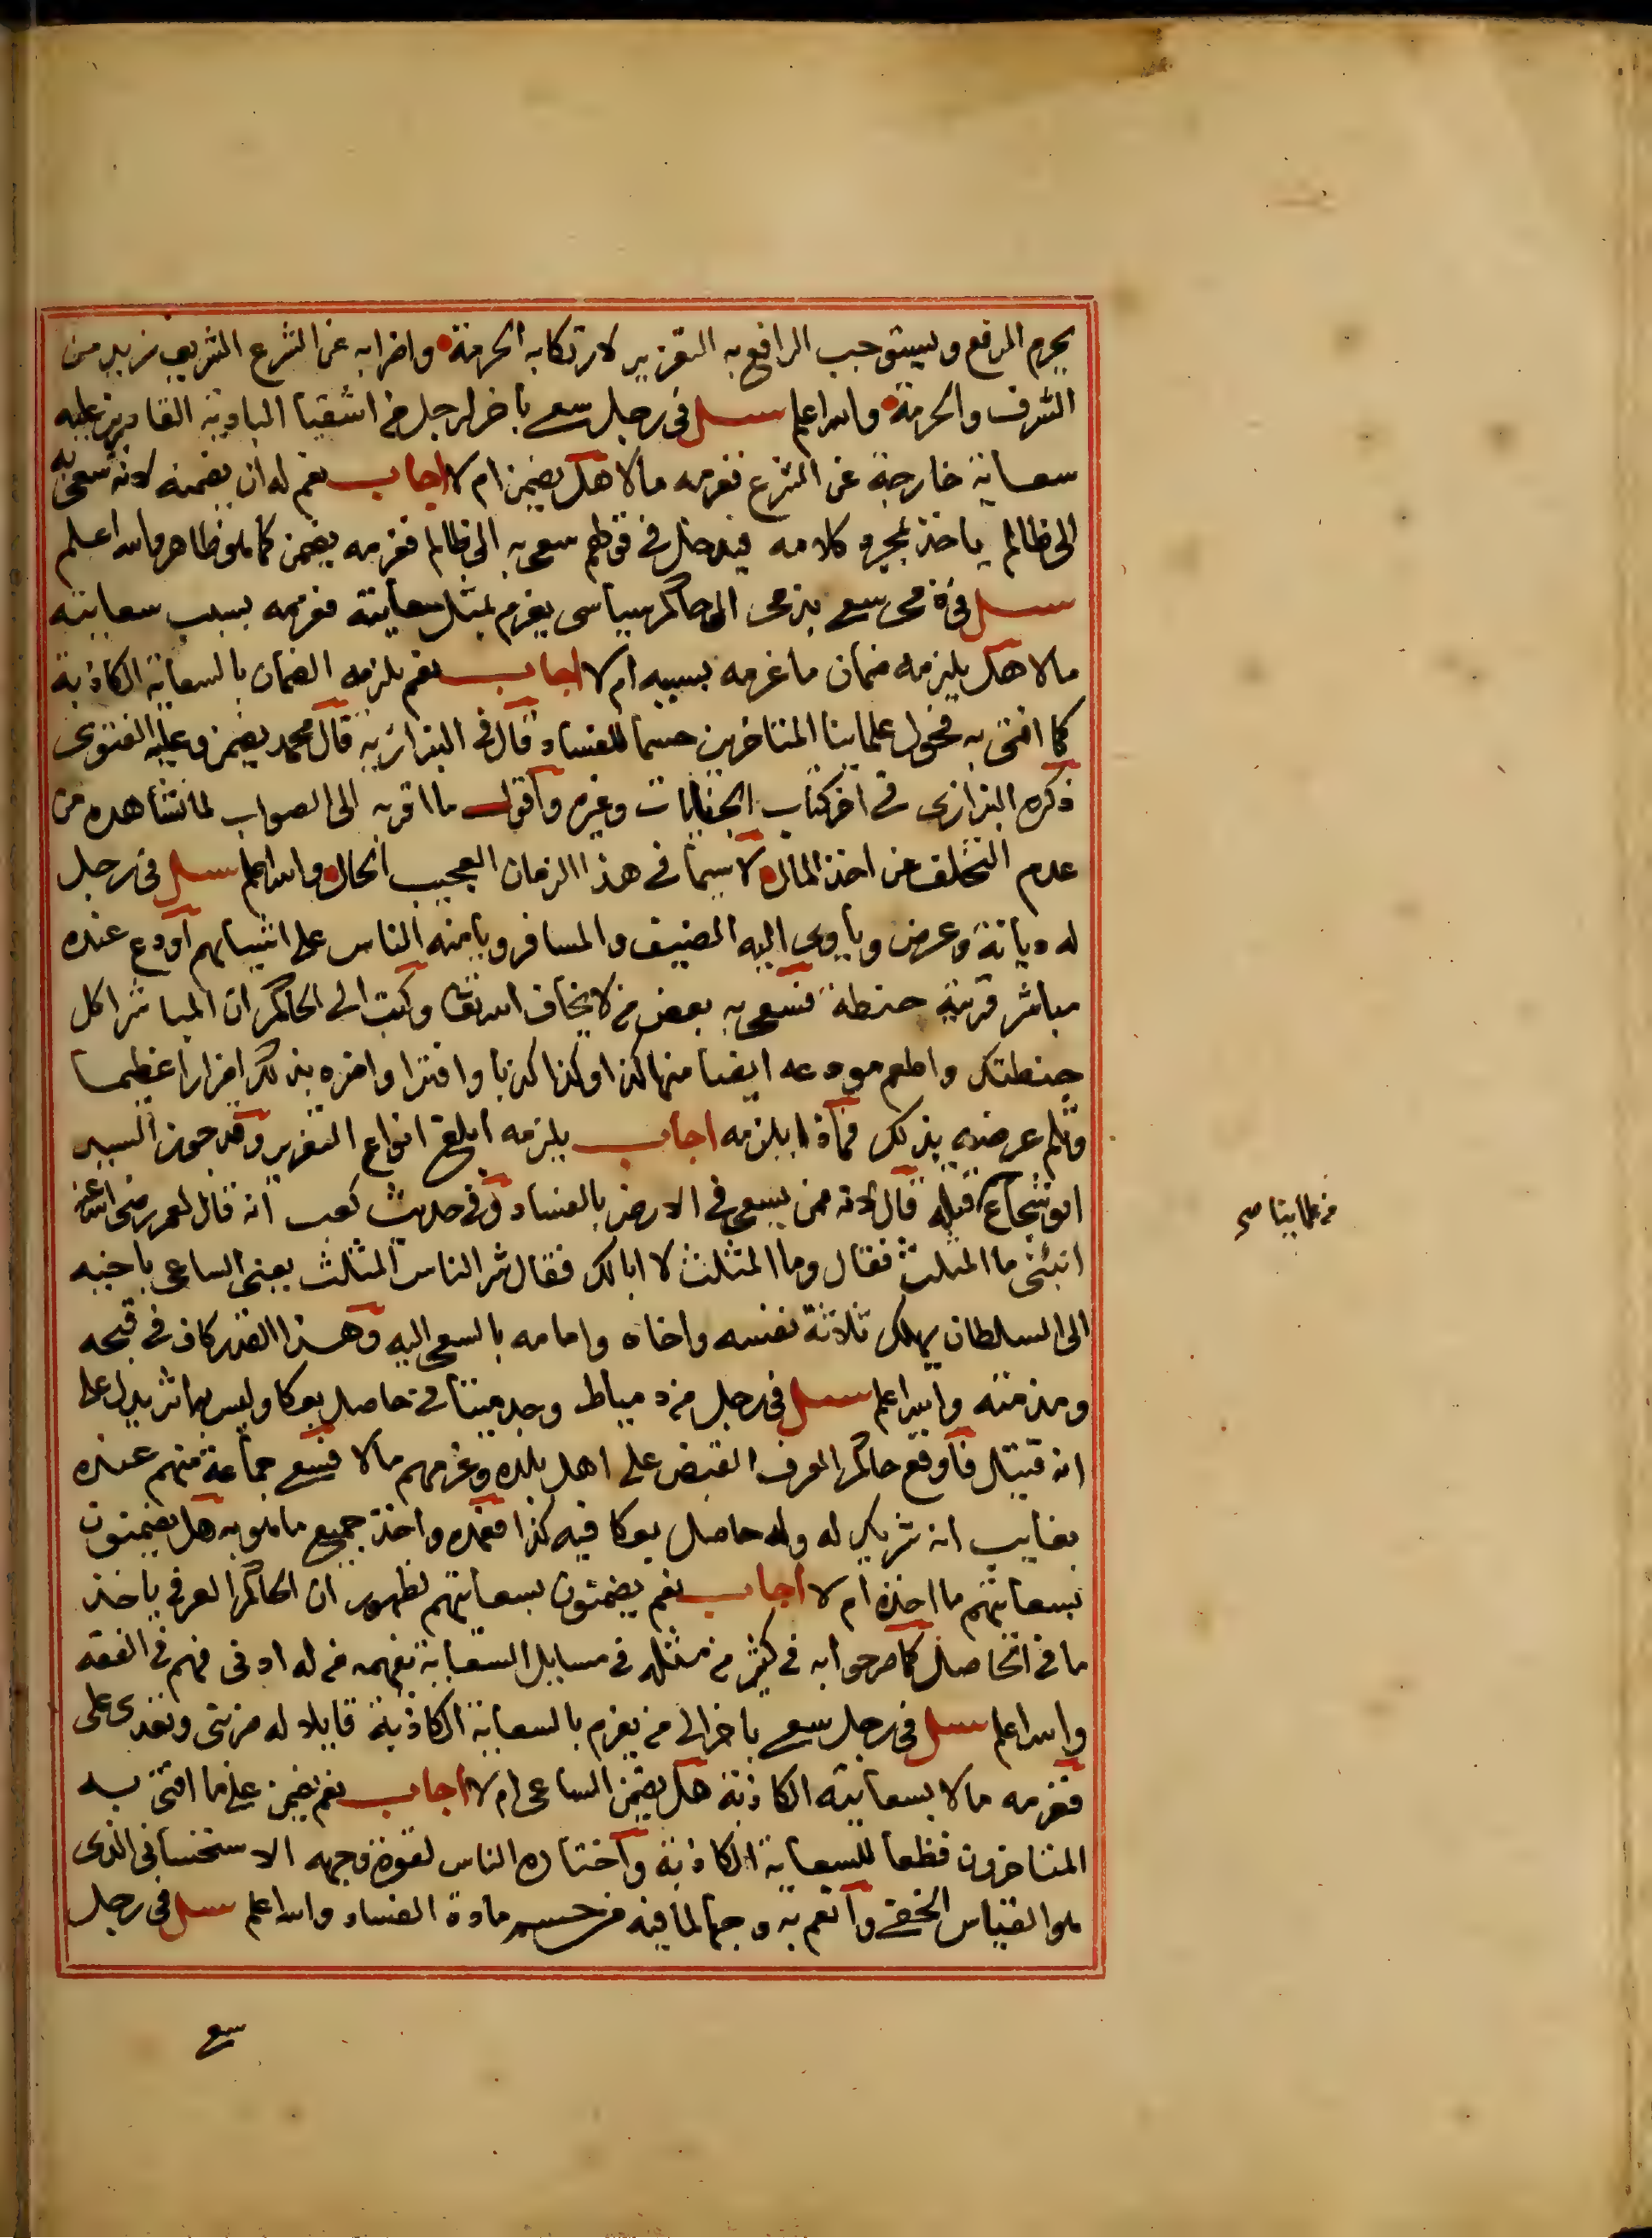 يحرم الرفع ويستوجب الرافع به التعزير لارتكابه الحرمة واضرابه عن الشرع الشريف زيد من
الشرف والحرمة والله اعلم سئل فى رجل سعى باخر لرجل من اشقيا البادية القادرين عليه
سعاية خارجة عن الشرع فغرمه مالا هل يضمن ام لا اجاب نعم له ان يضمنه لانه سعى به
الى ظالم ياخذ بمجرد كلامه فيدخل فى قولهم سعى به الى ظالم فغرمه يضمن كما هو ظاهر والله اعلم
سئل فى ذمى سعى بذمى الى حاكم سياسى يغرم بمثل سعايته فغرمه بسبب سعايته
مالا هل يلزمه ضمان ما غرمه بسببه ام لا اجاب نعم يلزمه الضمان بالسعاية الكاذبة
كما افتى به فحول علماينا المتاخرين حسما للفساد قال فى البزازية قال محمد يضمن وعليه الفتوى
ذكره البزازى فى اخر كتاب الجنايات وغيره واقول ما اقربه الى الصواب لما نشاهده من
عدم التخلف عن اخذ المال لا سيما فى هذا الزمان العجيب الحال والله اعلم سئل فى رجل
له ديانة وعرض وياوى اليه الضيف والمسافر ويامنه الناس على اشيايهم اودع عنده
مباشر قرية حنطة فسعى به بعض من لا يخاف الله تعا وكتب الى الحاكم ان المباشر اكل
حنطتك واطعم مودعه ايضا منها كذا وكذا كذبا وافترا واضره بذلك اضرارا عظيما
وثلم عرضه بذلك فماذا يلزمه اجاب يلزمه ابلغ انواع التعزير وقد جوز السيد
ابو شجاع قتله قال لانه ممن يسعى فى الارض بالفساد وفى حديث كعب انه قال لعمر رضى الله عنه
انبئنى ما المثلث فقال وما المثلث لا ابا لك فقال شر الناس المثلث يعنى الساعى باخيه
الى السلطان يهلك ثلاثة نفسه واخاه وامامه بالسعى اليه وهذا القدر كاف فى قبحه
ومذمته والله اعلم سئل فى رجل من دمياط وجد ميتا فى حاصل بعكا وليس بها اثر يدل على
انه قتيل فاوقع حاكم العرف القبض على اهل بلده وغرمهم مالا فسعى جماعة منهم عنده
بغايب انه شريك له وله حاصل بعكا فيه كذا فعمد واخذ جميع ما هو به هل يضمنون
بسعايتهم ما اخذه ام لا اجاب نعم يضمنون بسعايتهم لظهور ان الحاكم العرفى ياخذ
ما فى الحاصل كما صرحوا به فى كثير من مثله فى مسايل السعاية يفهمه من له ادنى فهم فى الفقه
والله اعلم سئل فى رجل سعى باخر الى من يغرم بالسعاية الكاذبة قايلا له ضربنى وتعدى على
فغرمه مالا بسعايته الكاذبة هل يضمن الساعى ام لا اجاب نعم يضمن على ما افتى به
المتاخرون قطعا للسعاية الكاذبة واختاره الناس لقوة وجهه الاستحسانى الذى
هو القياس الخفى وانعم به وجها لما فيه من حسم مادة الفساد والله اعلم سئل فى رجل
من علماينا صح
سعى